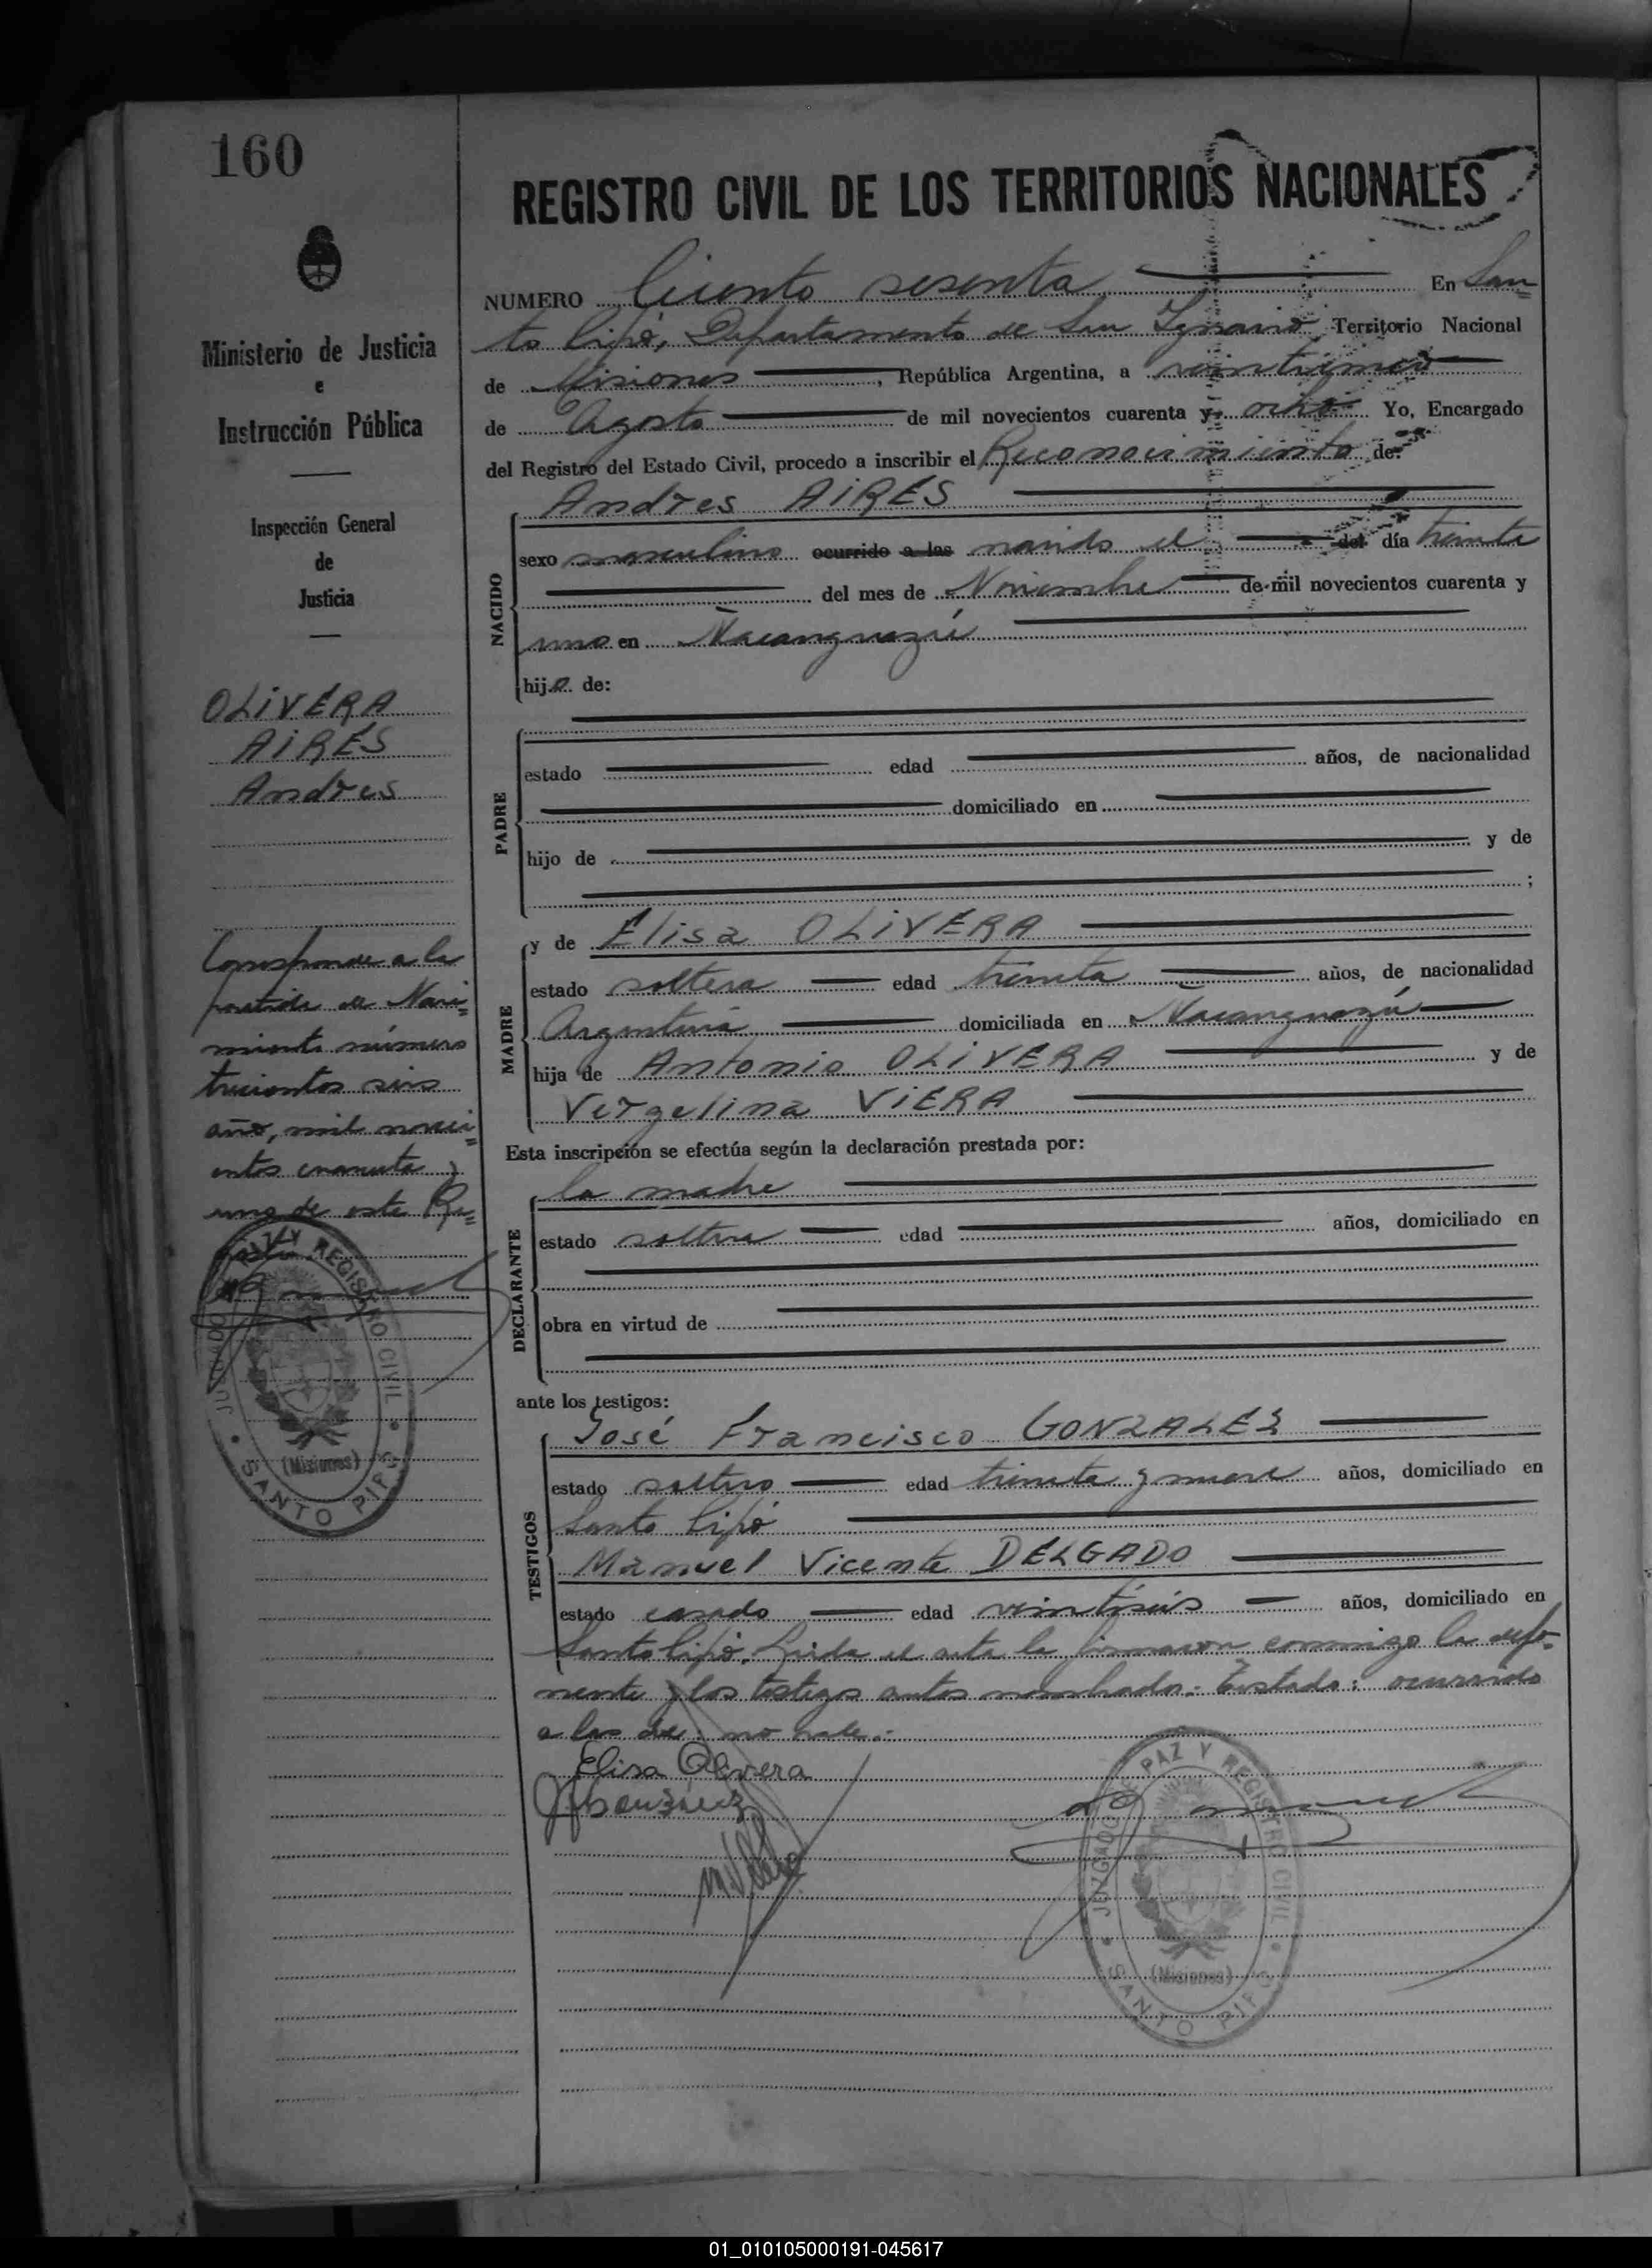 160
Ministerio de Justicia
e
Instrucción Pública
Inspección General
de
Justicia
OLiVERA
AiRES
Andres
Corresponde a la
partida de Naci=
miento número
trescientos seis
año, mil noveci=
entos cuarenta y
uno de este Re=
gistro
JUZGADO DE PAZ Y REGISTRO CIVIL
(Misiones)
SANTO PIPÓ
REGISTRO CIVIL DE LOS TERRITORIOS NACIONALES
NUMERO Ciento sesenta En San=
to Pipó, Departamento de San Ignacio Territorio Nacional
de Misiones, República Argentina, a veinticinco
de Agosto de mil novecientos cuarenta y ocho Yo, Encargado
del Registro del Estado Civil, procedo a inscribir el Reconocimiento de:
Andres AiRES
NACIDO
sexo masculino ocurrido a las nacido el del día treinta
del mes de Noviembre de mil novecientos cuarenta y
uno en Ñacanguazú
hijo de:
PADRE
estado edad años, de nacionalidad
domiciliado en
hijo de y de
;
MADRE
y de Elisa OLiVERA
estado soltera edad treinta años, de nacionalidad
Argentina domiciliada en Ñacanguazú
hija de Antonio OLiVERA y de
Vergelina ViERA
Esta inscripción se efectúa según la declaración prestada por:
DECLARANTE
la madre
estado soltera edad años, domiciliado en
obra en virtud de
ante los testigos:
TESTIGOS
José Francisco GONZALES
estado soltero edad treinta y nueve años, domiciliado en
Santo Pipó
Manuel Vicente DELGADO
estado casado edad veintiseis años, domiciliado en
Santo Pipó. Leida el acta la firmaron conmigo la depo=
nente y los testigos antes nombrados.- Testado: ocurrido
a las del: no vale.-
Elisa Olivera
JUZGADO DE PAZ Y REGISTRO CIVIL
(Misiones)
SANTO PIPÓ
01_010105000191-045617